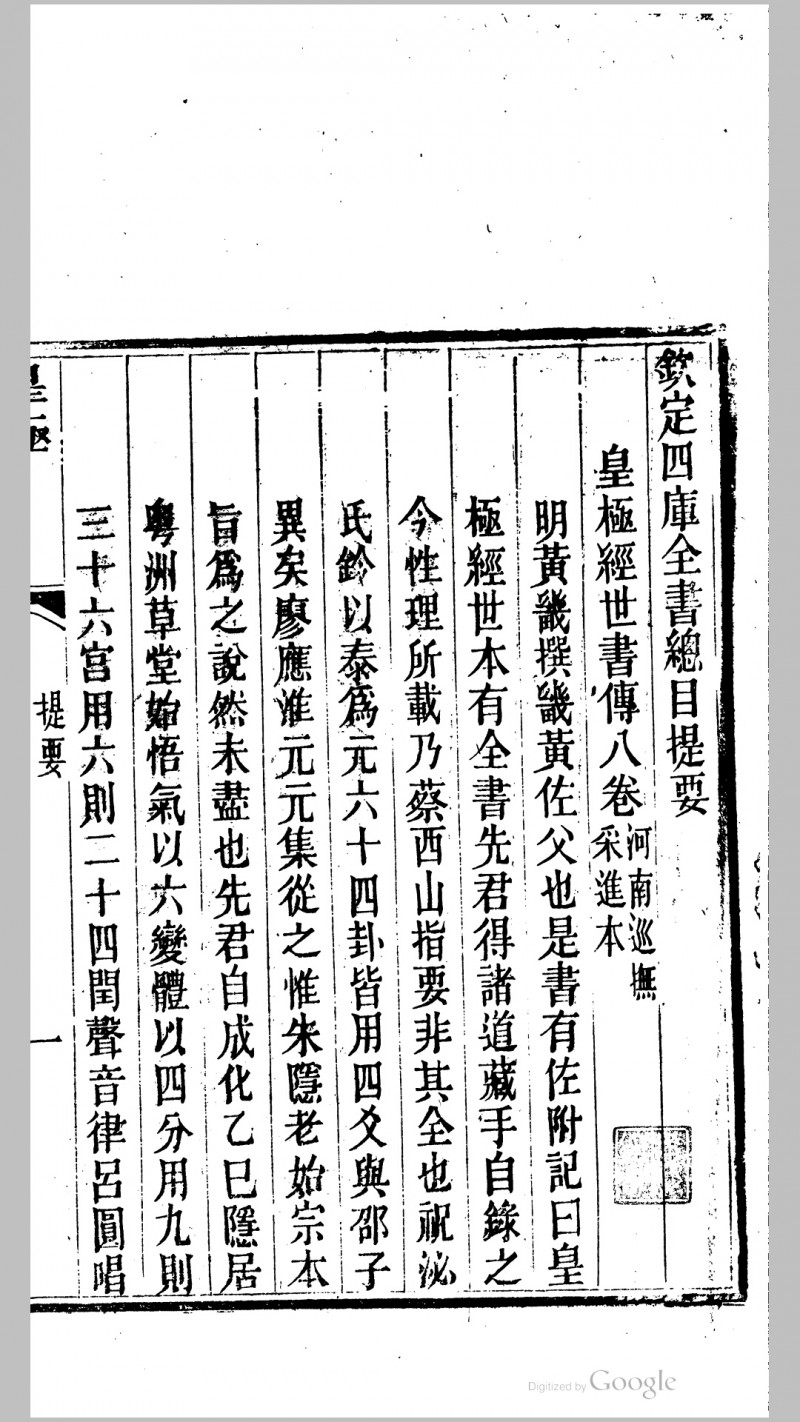 欽定四庫全書總目提要
皇極經世書傳八卷河南巡撫
采進本
明黃畿撰畿黃佐父也是書有佐附記曰皇
極經世本有全書先君得諸道藏手自錄之
今性理所載乃蔡西山指要非其全也祝泌
氏鈐以泰爲元六十四卦皆用四爻與邵子
異矣廖應淮元元集從之惟朱隱老始宗本
旨爲之說然未盡也先君自成化乙巳隱居
粵洲草堂始悟氣以六變體以四分用九則
三十六宮用六則二十四閏聲音律呂圓唱
提要
一
Digitized by Google